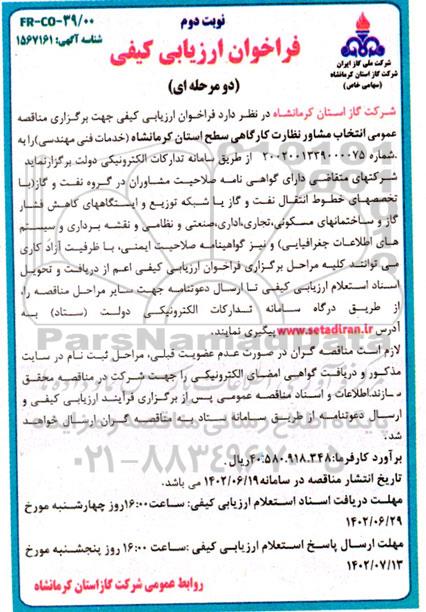 FR-CO-39/00
شناسه آگهی: 1567161
نوبت دوم
فراخوان ارزیابی کیفی
(دو مرحله ای)
شرکت ملی گاز ایران
شرکت گاز استان کرمانشاه
(سهامی خاص)
شرکت گاز استان کرمانشاه در نظر دارد فراخوان ارزیابی کیفی جهت برگزاری مناقصه
عمومی انتخاب مشاور نظارت کارگاهی سطح استان کرمانشاه (خدمات فنی مهندسی) را به
شماره 2002001339000075 از طریق سامانه تدارکات الکترونیکی دولت برگزار نماید.
شرکتهای متقاضی دارای گواهی نامه صلاحیت مشاوران در گروه نفت و گاز (با
تخصصهای خطوط انتقال نفت و گاز یا شبکه توزیع و ایستگاههای کاهش فشار
گاز و ساختمانهای مسکونی،تجاری،اداری،صنعتی و نظامی و نقشه برداری و سیستم
های اطلاعات جغرافیایی) و نیز گواهینامه صلاحیت ایمنی، با ظرفیت آزاد کاری
می توانند کلیه مراحل برگزاری فراخوان ارزیابی کیفی اعم از دریافت و تحویل
اسناد استعلام ارزیابی کیفی تا ارسال دعوتنامه جهت سایر مراحل مناقصه را،
از طریق درگاه سامانه تدارکات الکترونیکی دولت (ستاد) به
آدرس www.setadiran.ir پیگیری نمایند.
لازم است مناقصه گران در صورت عدم عضویت قبلی، مراحل ثبت نام در سایت
مذکور و دریافت گواهی امضای الکترونیکی را جهت شرکت در مناقصه محقق
سازند.اطلاعات و اسناد مناقصه عمومی پس از برگزاری فرآیند ارزیابی کیفی و
ارسال دعوتنامه از طریق سامانه ستاد به مناقصه گران ارسال خواهد
شد.
برآورد کارفرما: 40.580.918.348 ریال.
تاریخ انتشار مناقصه در سامانه 1402/06/19 می باشد.
مهلت دریافت اسناد استعلام ارزیابی کیفی: ساعت 16:00 روز چهارشنبه مورخ
1402/06/29
مهلت ارسال پاسخ استعلام ارزیابی کیفی :ساعت 16:00 روز پنجشنبه مورخ
1402/07/13
روابط عمومی شرکت گاز استان کرمانشاه
ParsNamadData
021-88349670-5